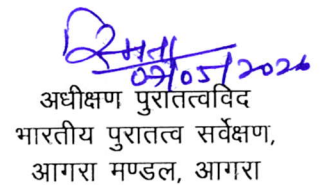 स्मिता
07/05/2026
अधीक्षण पुरातत्वविद
भारतीय पुरातत्व सर्वेक्षण,
आगरा मण्डल, आगरा